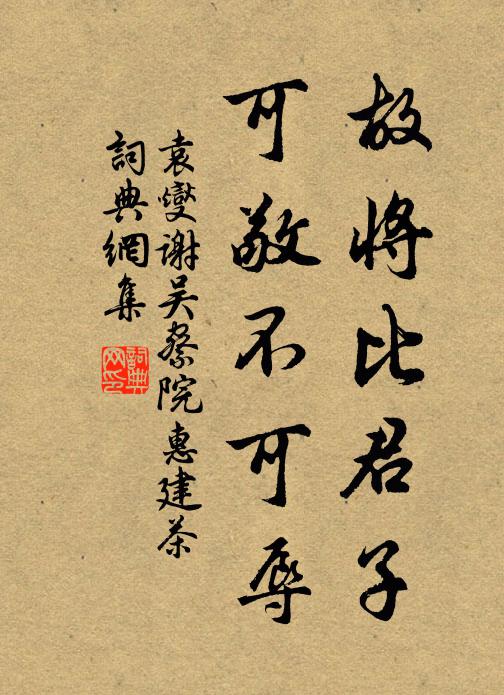 故將比君子
可敬不可辱
袁燮謝吳察院惠建茶
詞典網集
詞典
网印